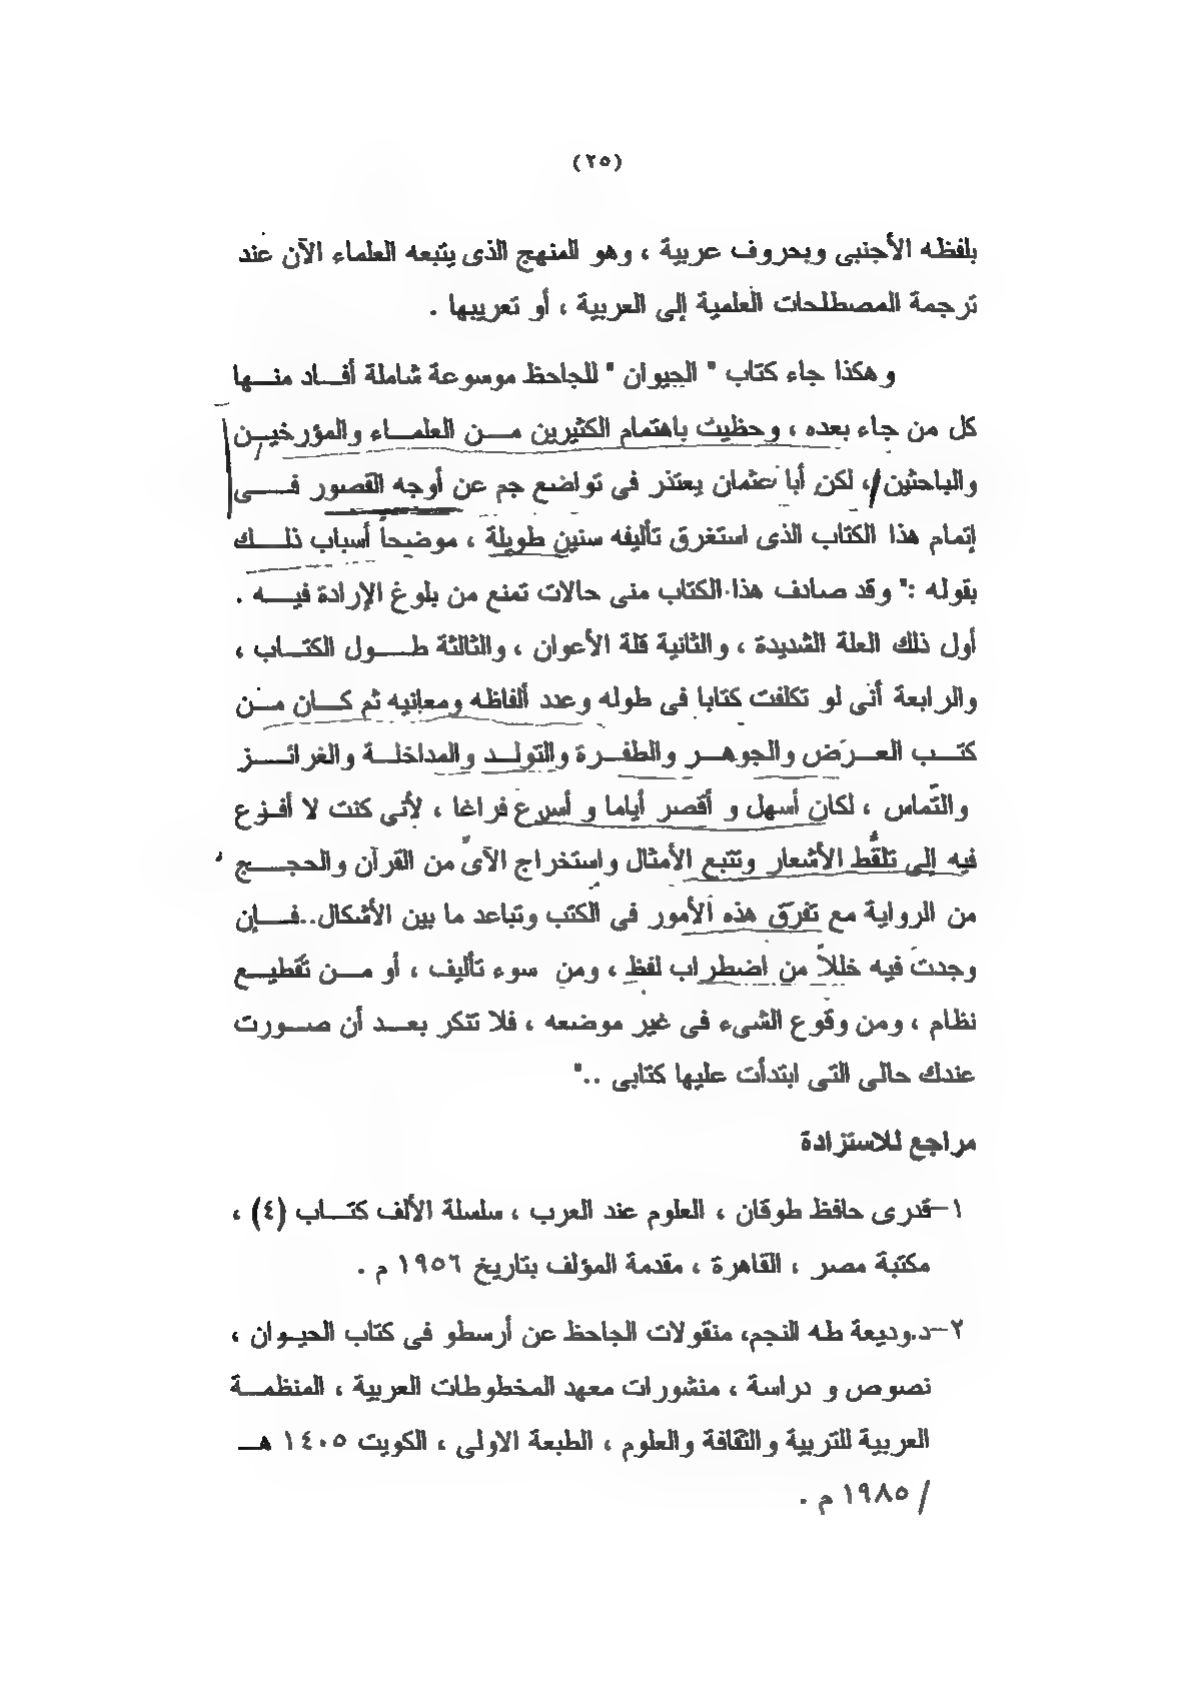 (٢٥)
بلفظه الأجنبى وبحروف عربية ، وهو المنهج الذى يتبعه العلماء الآن عند
ترجمة المصطلحات العلمية إلى العربية ، أو تعريبها .
وهكذا جاء كتاب " الحيوان " للجاحظ موسوعة شاملة أفاد منها
كل من جاء بعده ، وحظيت باهتمام الكثيرين من العلماء والمؤرخين
والباحثين ، لكن أبا عثمان يعتذر فى تواضع جم عن أوجه القصور فى
إتمام هذا الكتاب الذى استغرق تأليفه سنين طويلة ، موضحاً أسباب ذلك
بقوله :" وقد صادف هذا الكتاب منى حالات تمنع من بلوغ الإرادة فيه .
أول ذلك العلة الشديدة ، والثانية قلة الأعوان ، والثالثة طول الكتاب ،
والرابعة أنى لو تكلفت كتابا فى طوله وعدد ألفاظه ومعانيه ثم كان من
كتب العرَض والجوهر والطفرة والتولد والمداخلة والغرائز
والتماس ، لكان أسهل و أقصر أياما و أسرع فراغا ، لأنى كنت لا أفزع
فيه إلى تلقُّط الأشعار وتتبع الأمثال واستخراج الآىّ من القرآن والحجج
من الرواية مع تفرّق هذه الأمور فى الكتب وتباعد ما بين الأشكال..فإن
وجدت فيه خللاً من اضطراب لفظ ، ومن سوء تأليف ، أو من تقطيع
نظام ، ومن وقوع الشىء فى غير موضعه ، فلا تنكر بعد أن صورت
عندك حالى التى ابتدأت عليها كتابى .."
مراجع للاستزادة
١–قدرى حافظ طوقان ، العلوم عند العرب ، سلسلة الألف كتاب (٤) ،
مكتبة مصر ، القاهرة ، مقدمة المؤلف بتاريخ ١٩٥٦ م .
٢–د.وديعة طه النجم، منقولات الجاحظ عن أرسطو فى كتاب الحيوان ،
نصوص و دراسة ، منشورات معهد المخطوطات العربية ، المنظمة
العربية للتربية والثقافة والعلوم ، الطبعة الاولى ، الكويت ١٤٠٥ هـ
/ ١٩٨٥ م .